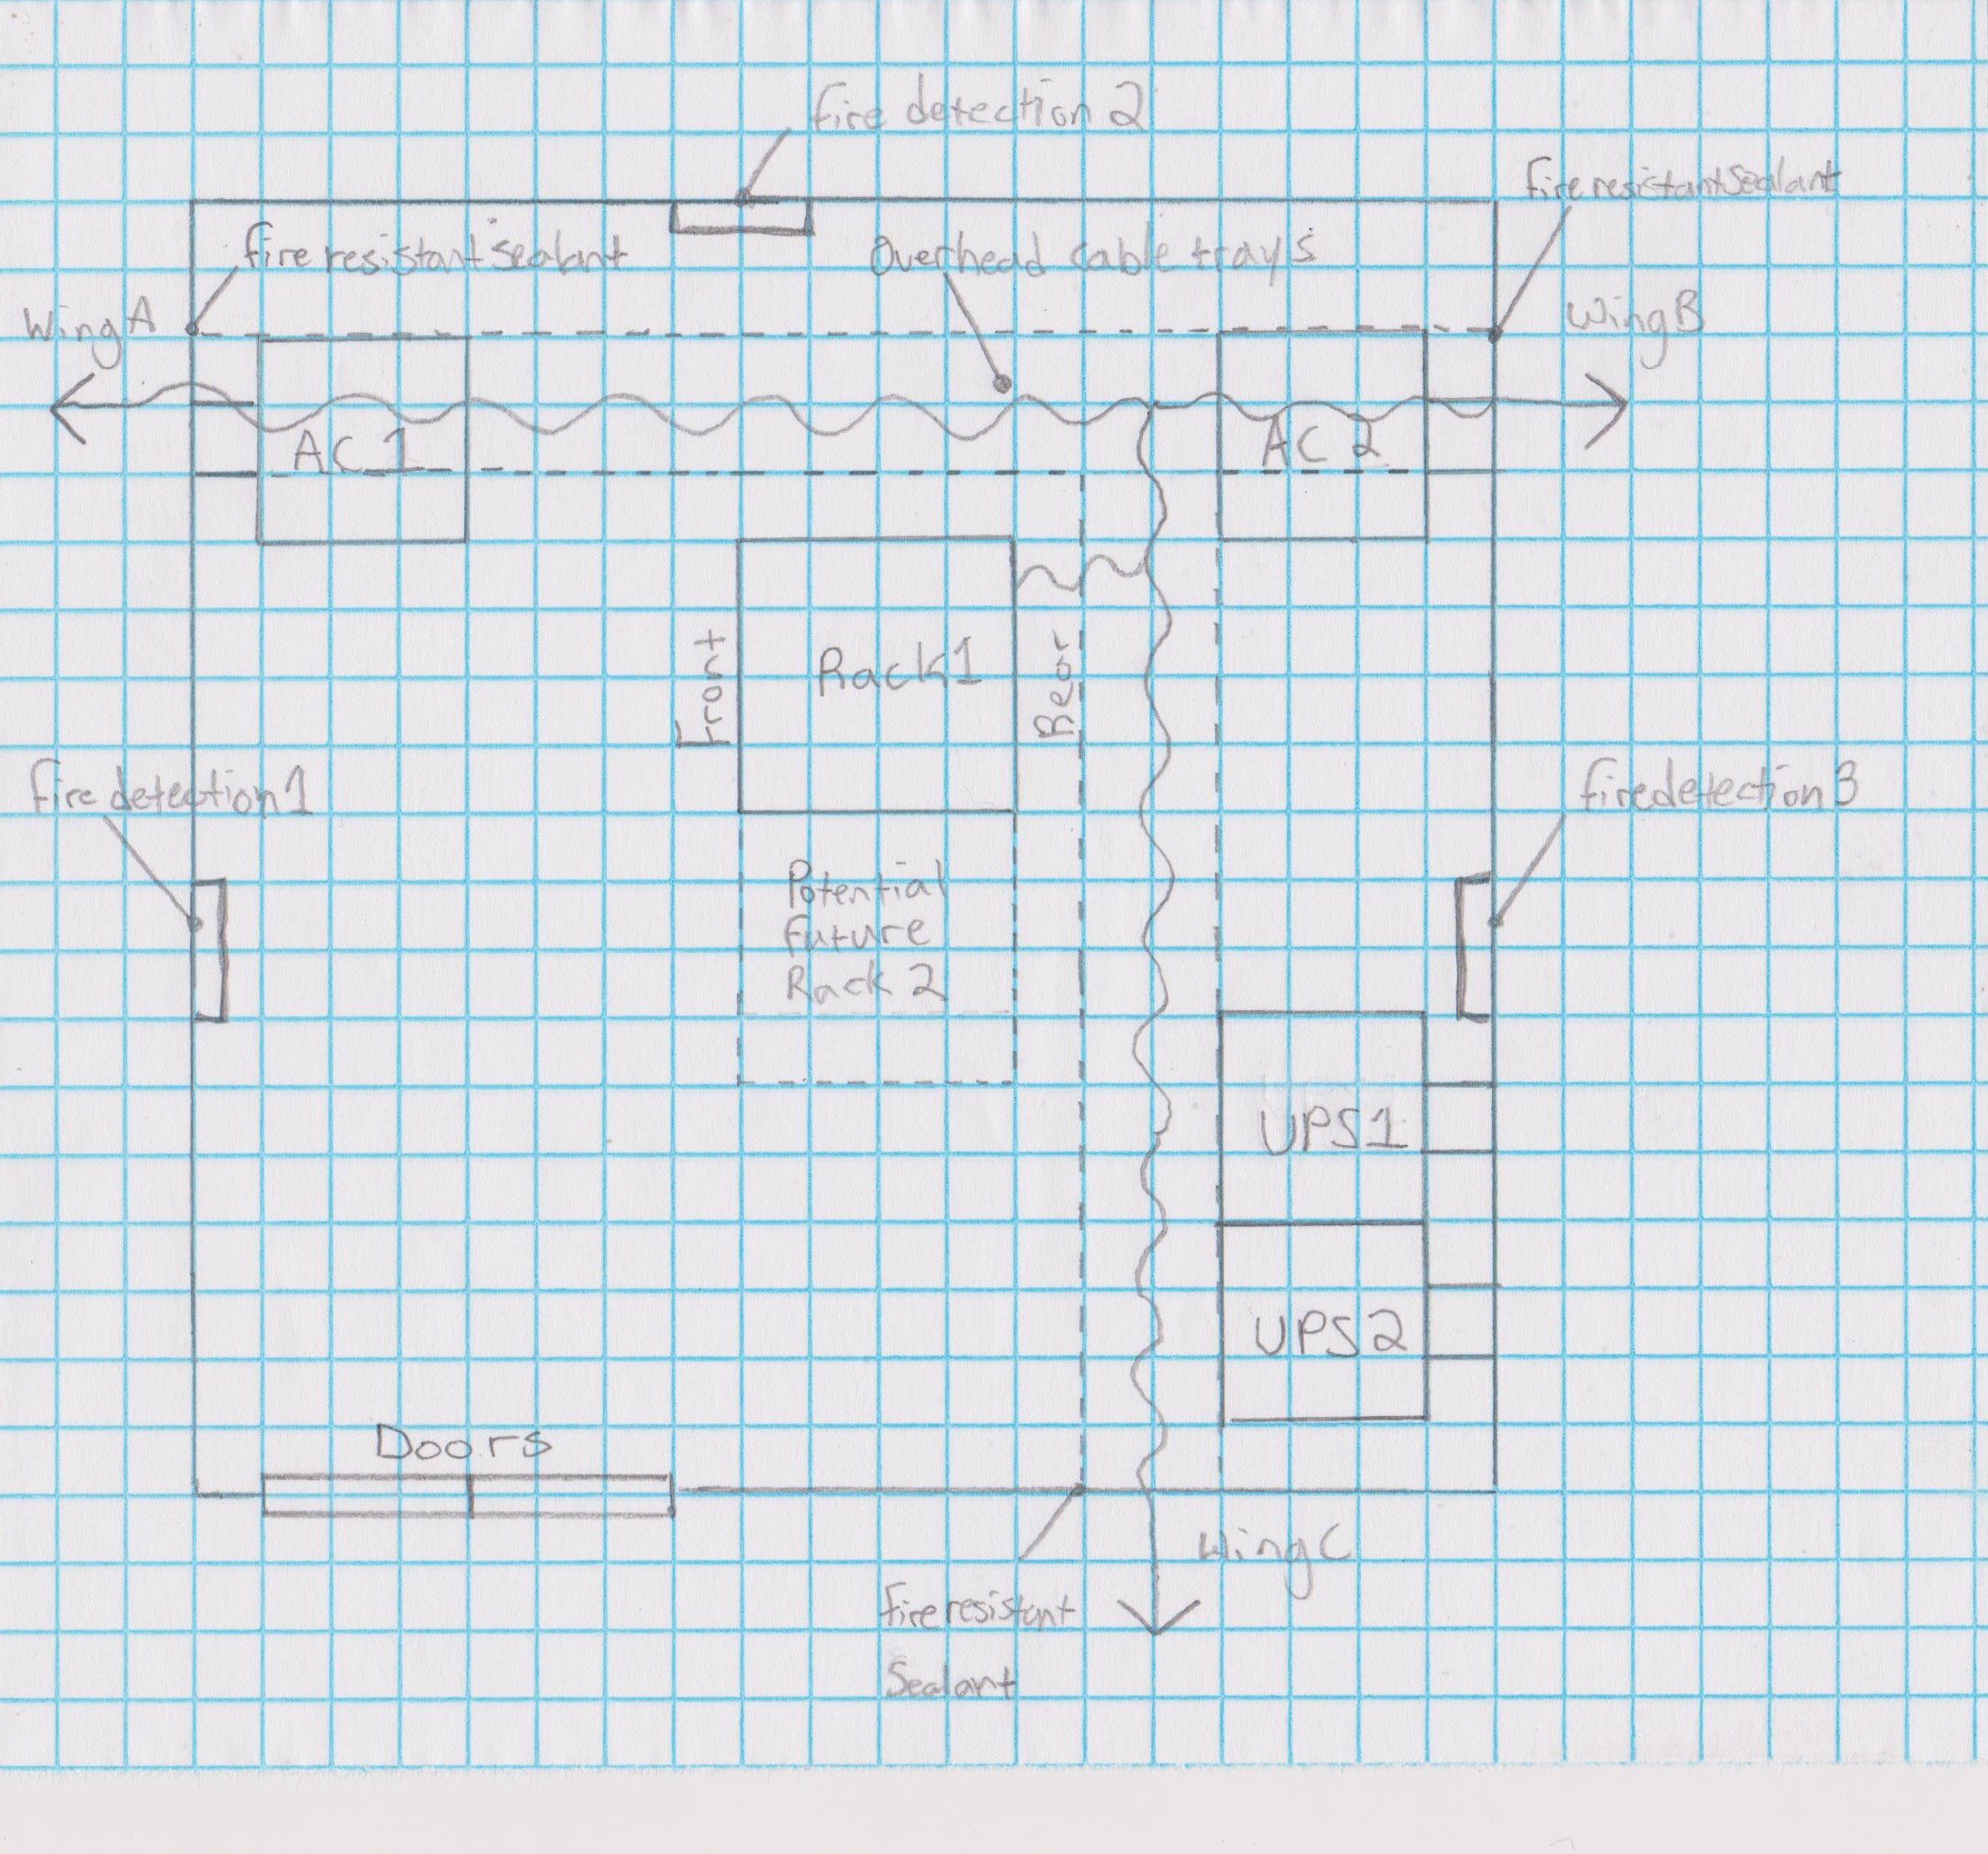 fire detection 2
fire resistant sealant
fire resistant sealant
Overhead cable trays
Wing A
Wing B
AC 1
AC 2
Front
Rack 1
Rear
fire detection 1
fire detection 3
Potential
future
Rack 2
UPS1
UPS2
Doors
Wing C
fire resistant
Sealant